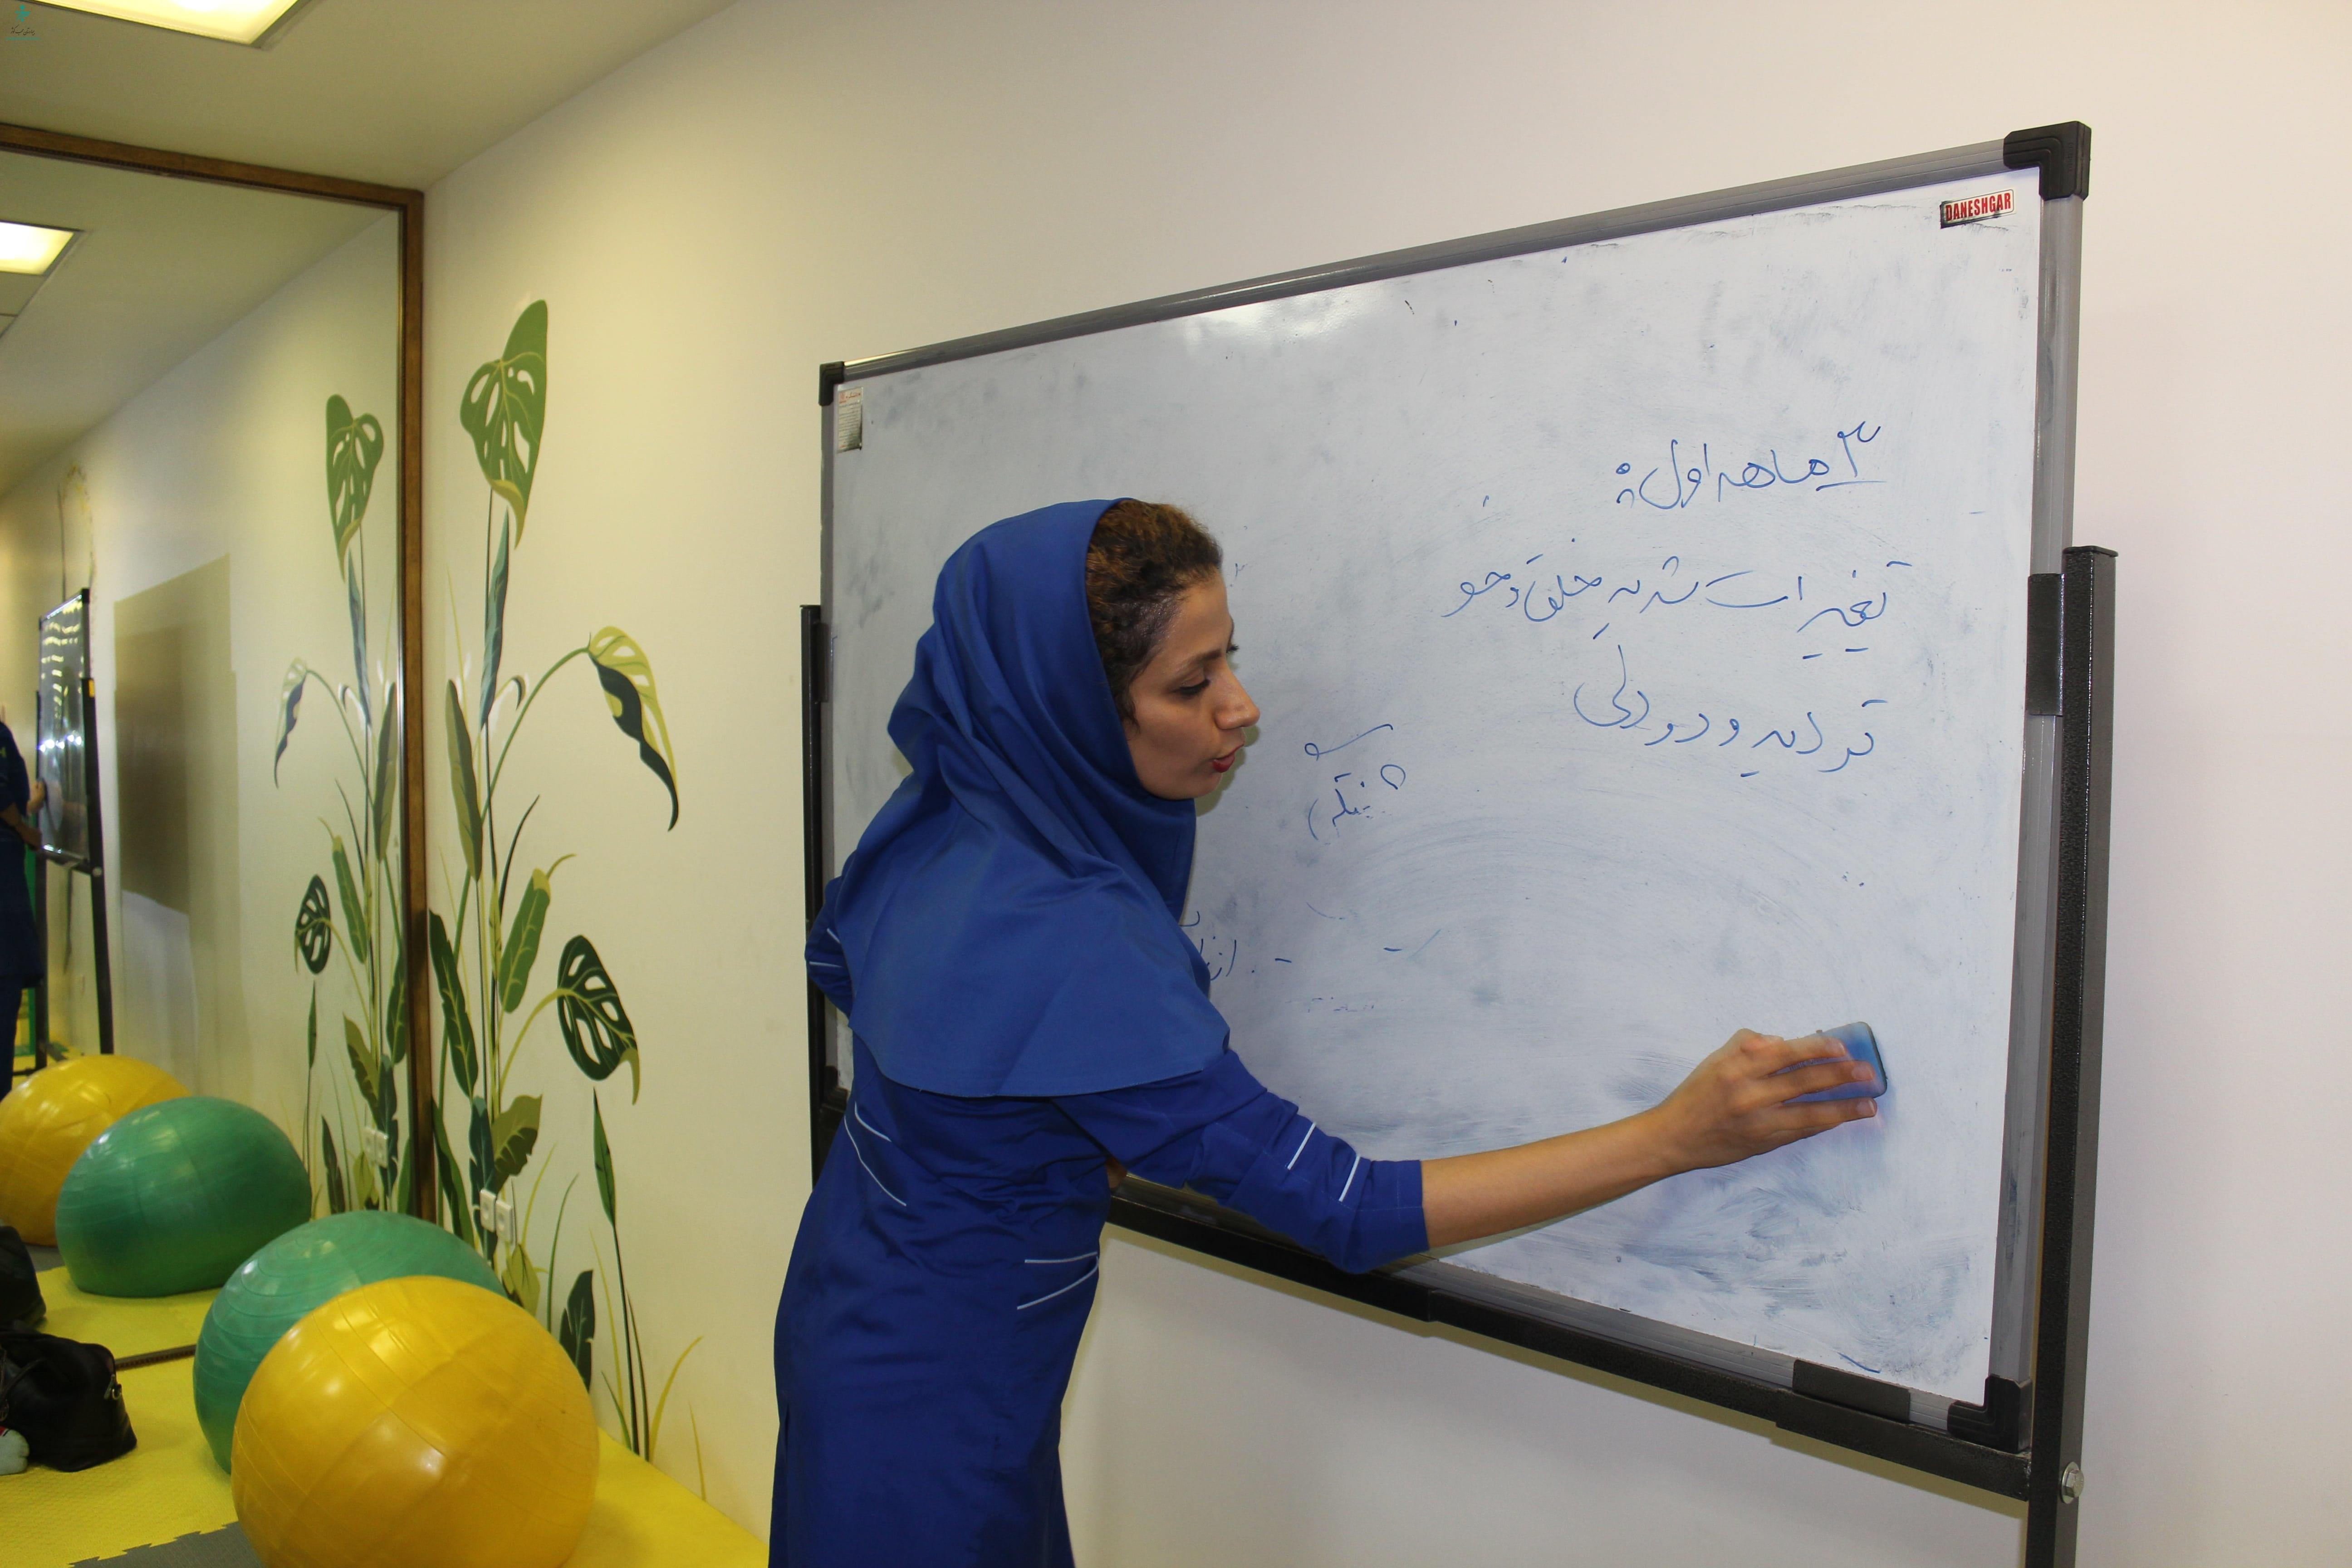 DANESHGAR
۳ ماهه اول:
تغییرات شدید خلق و خو
تردید و دودلی